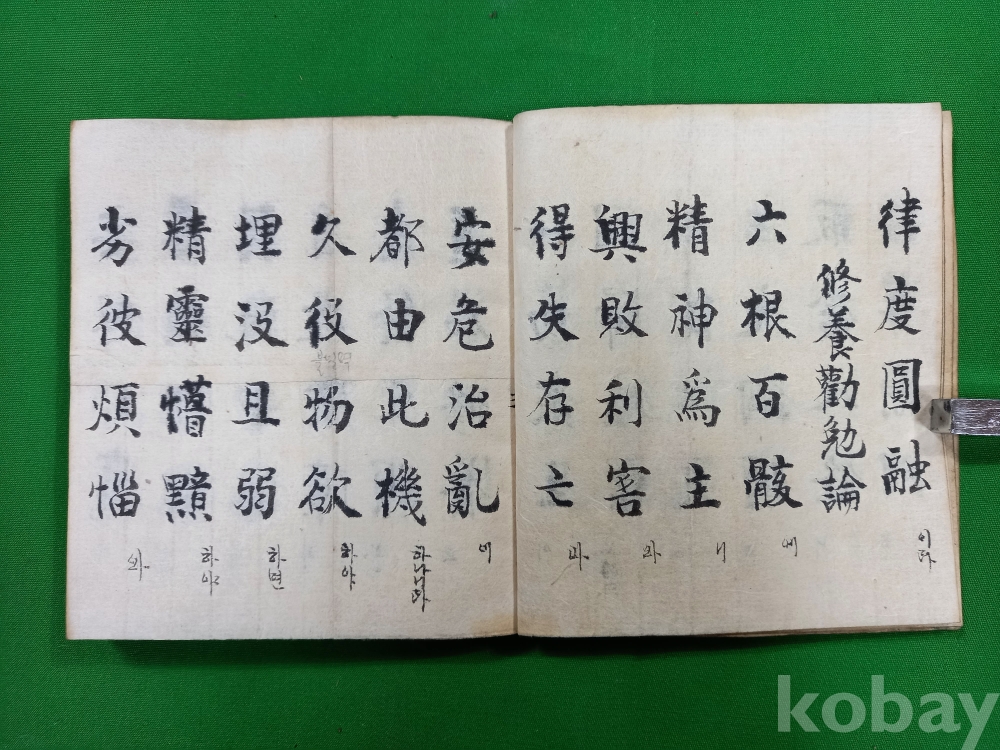 律度圓融 이다
修養勸勉論
六根百骸 에
精神爲主 니
興敗利害 와
得失存亡 과
安危治亂 이
都由此機 하나니라
久役物欲 하야
埋没且弱 하면
精靈懵黯 하야
劣彼煩惱 와
kobay